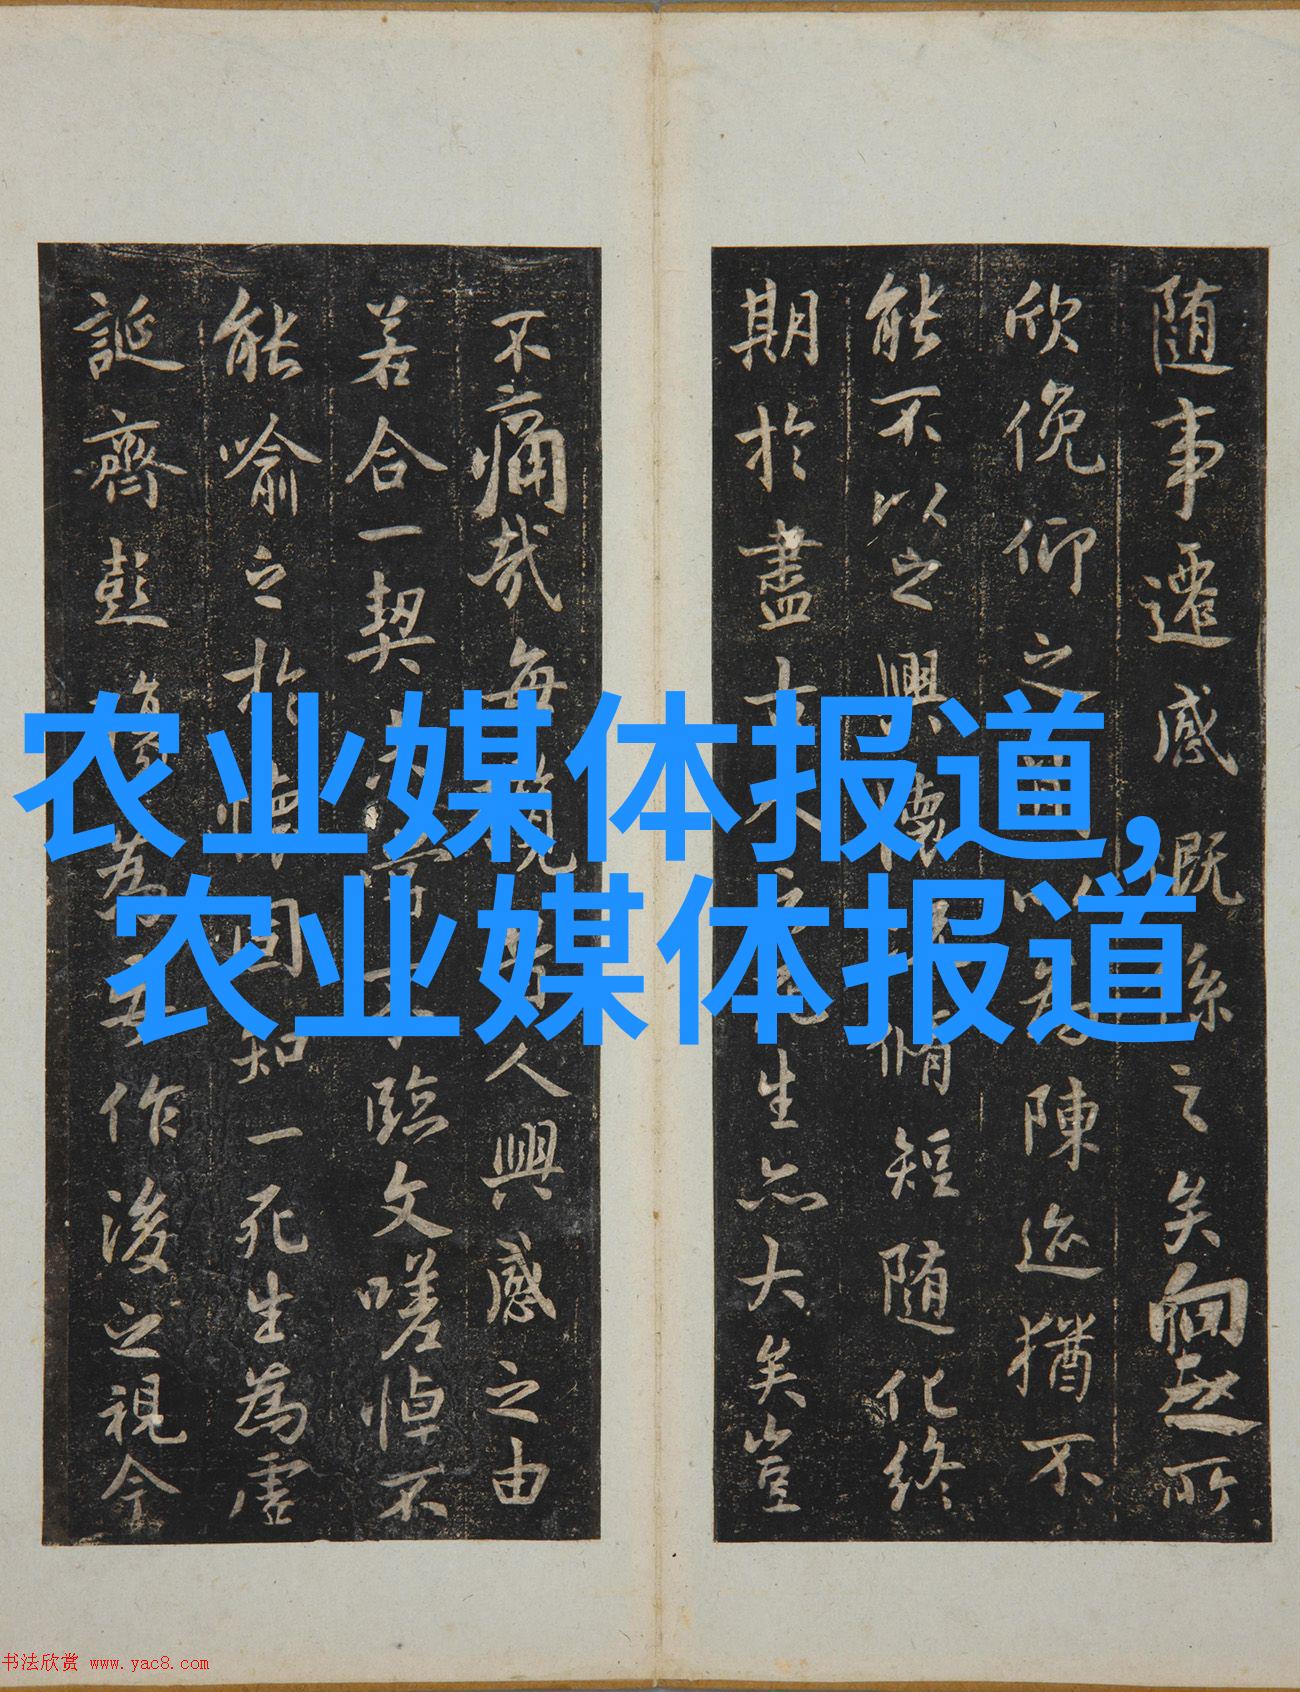 农业媒体报道,
农业媒体报道
随事遷感慨係之矣向之所
欣俛仰之以為陳迹猶不
能不以之興懷脩短随化終
期於盡古人死生亦大矣豈
不痛哉每攬昔人興感之由
若合一契未嘗不臨文嗟悼不
能喻之於懷固知一死生為虛
誕齊彭殤為妄作後之視今
书法欣赏 www.yac8.com